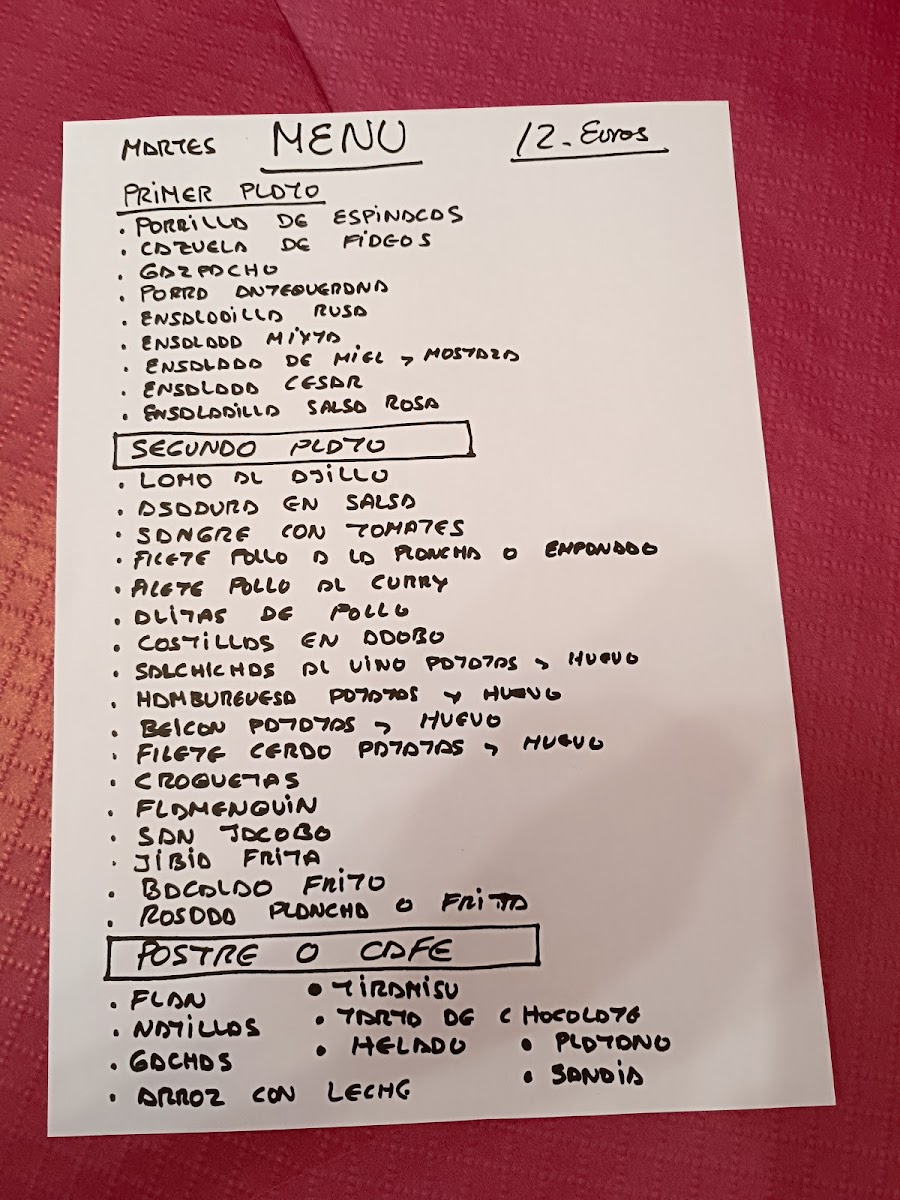 MARTES MENU 12.- Euros
PRIMER PLATO
. PORRILLA DE ESPINACAS
. CAZUELA DE FIDEOS
. GAZPACHO
. PORRA ANTEQUERANA
. ENSALADILLA RUSA
. ENSALADA MIXTA
. ENSALADA DE MIEL Y MOSTAZA
. ENSALADA CESAR
. ENSALADILLA SALSA ROSA
SEGUNDO PLATO
. LOMO AL AJILLO
. ASADURA EN SALSA
. SANGRE CON TOMATES
. FILETE POLLO A LA PLANCHA O EMPANADO
. FILETE POLLO AL CURRY
. ALITAS DE POLLO
. COSTILLAS EN ADOBO
. SALCHICHAS AL VINO PATATAS Y HUEVO
. HAMBURGUESA PATATAS Y HUEVO
. BEICON PATATAS Y HUEVO
. FILETE CERDO PATATAS Y HUEVO
. CROQUETAS
. FLAMENQUIN
. SAN JACOBO
. JIBIA FRITA
. BACALAO FRITO
. ROSADA PLANCHA O FRITA
POSTRE O CAFE
. FLAN • TIRAMISU
. NATILLAS • TARTA DE CHOCOLATE
. GACHAS • HELADO • PLATANO
. ARROZ CON LECHE • SANDIA